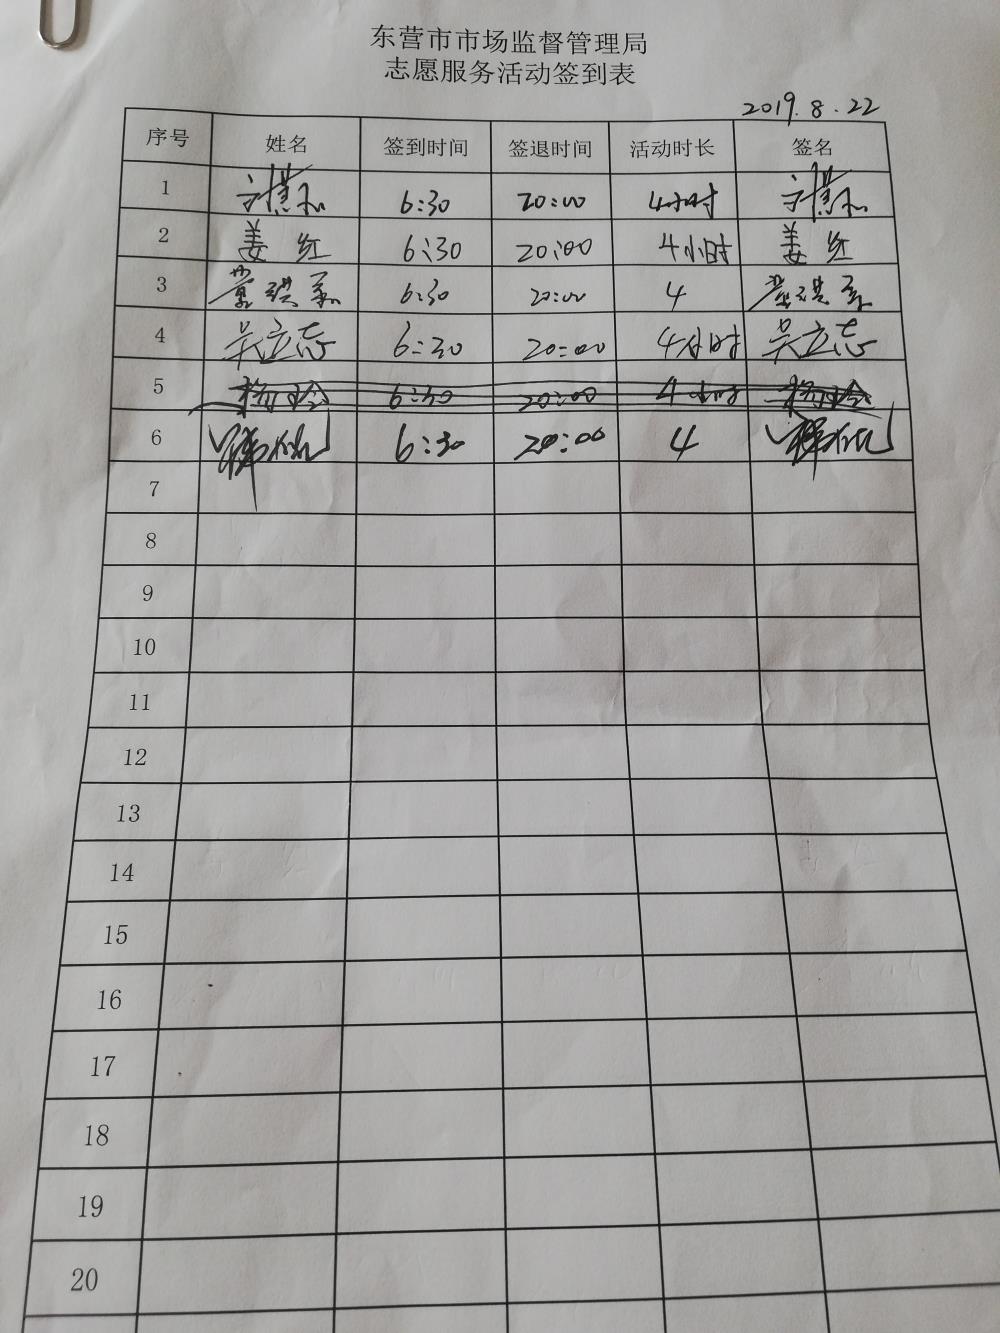 东营市市场监督管理局
志愿服务活动签到表
2019.8.22
序号 姓名 签到时间 签退时间 活动时长 签名
1 6:30 20:00 4小时
2 姜红 6:30 20:00 4小时 姜红
3 6:30 20:00 4
4 吴立志 6:30 20:00 4小时 吴立志
5 6:30 20:00 4小时
6 6:30 20:00 4
7
8
9
10
11
12
13
14
15
16
17
18
19
20